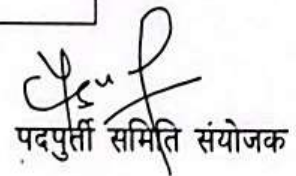 पदपुर्ती समिति संयोजक